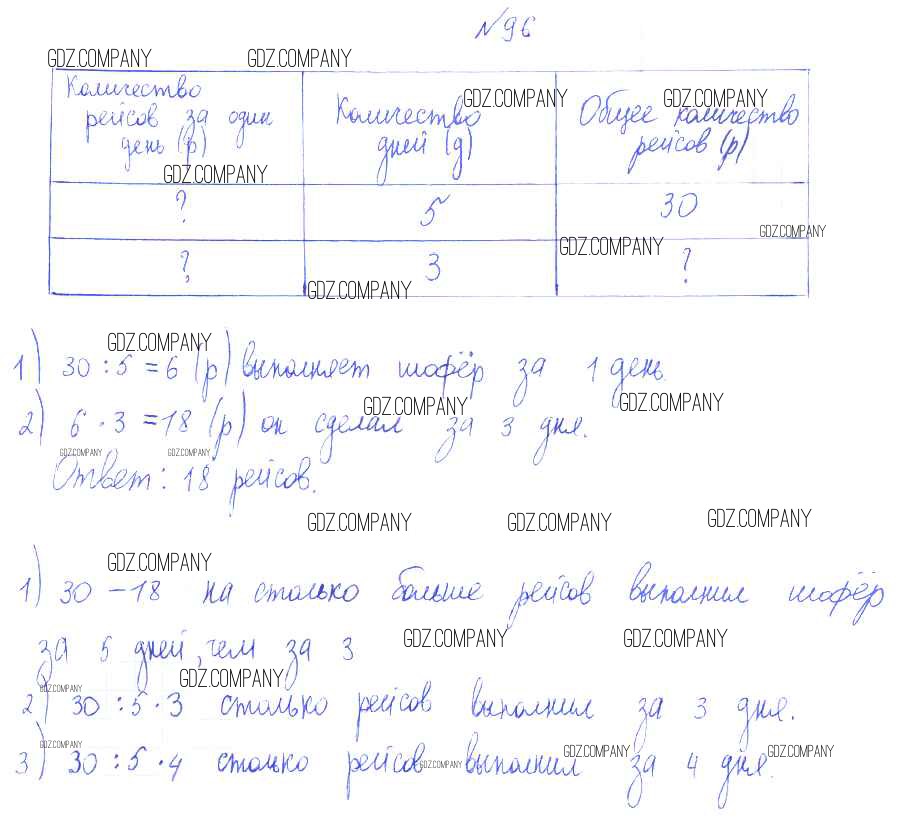 №96
GDZ.COMPANY GDZ.COMPANY
Количество рейсов за один день (р)
Количество дней (д)
Общее количество рейсов (р)
GDZ.COMPANY GDZ.COMPANY
GDZ.COMPANY
? 5 30
GDZ.COMPANY
GDZ.COMPANY
? 3 ?
GDZ.COMPANY
GDZ.COMPANY
1) 30 : 5 = 6 (р) выполняет шофёр за 1 день.
GDZ.COMPANY GDZ.COMPANY
2) 6 · 3 = 18 (р) он сделал за 3 дня.
GDZ.COMPANY GDZ.COMPANY
Ответ: 18 рейсов.
GDZ.COMPANY GDZ.COMPANY GDZ.COMPANY
GDZ.COMPANY
1) 30 – 18 на столько больше рейсов выполнил шофёр
за 5 дней, чем за 3
GDZ.COMPANY GDZ.COMPANY
GDZ.COMPANY GDZ.COMPANY
2) 30 : 5 · 3 столько рейсов выполнил за 3 дня.
GDZ.COMPANY GDZ.COMPANY GDZ.COMPANY GDZ.COMPANY
3) 30 : 5 · 4 столько рейсов выполнил за 4 дня.